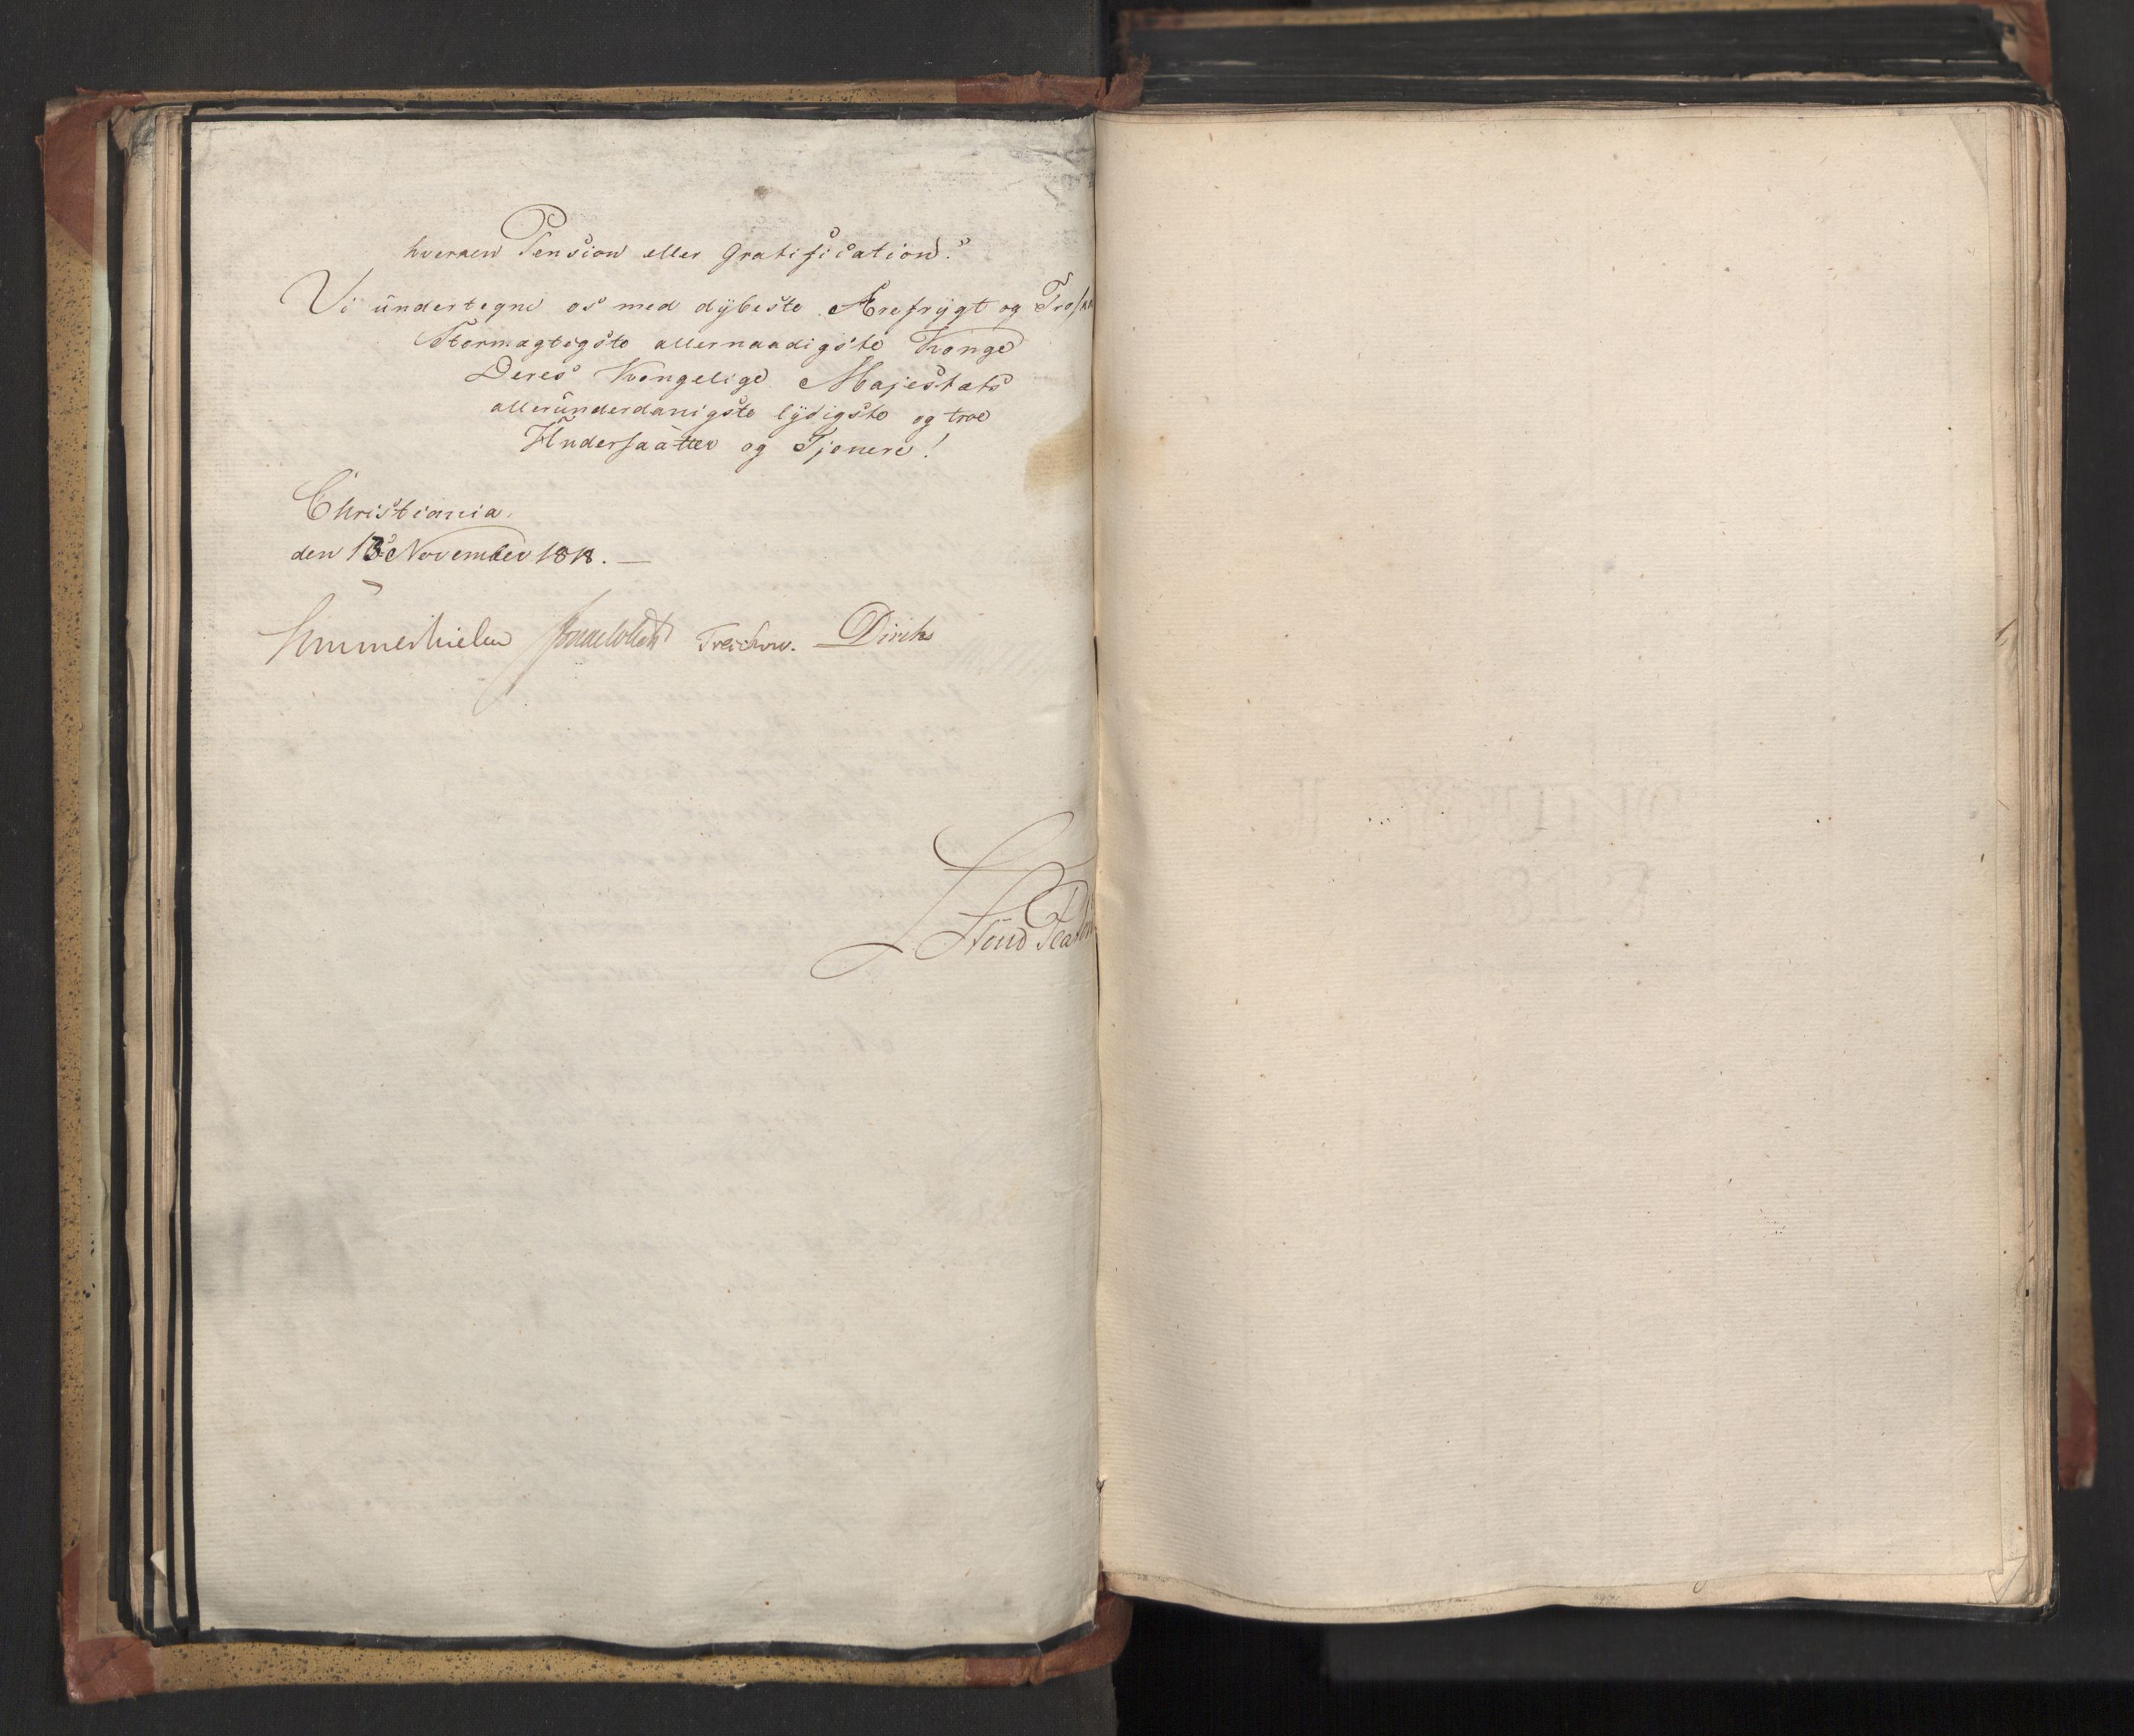 hverken Pension eller Gratification.
Vi undertegne os med dybeste Ærefrygt og
Stormægtigste allernaadigste Konge
Deres Kongelige Majestæts
allerunderdanigste lydigste og troe
Undersaatter og Tjenere!
Christiania,
den 13de November 1818. —
Sommerhielm Treschow. Diriks